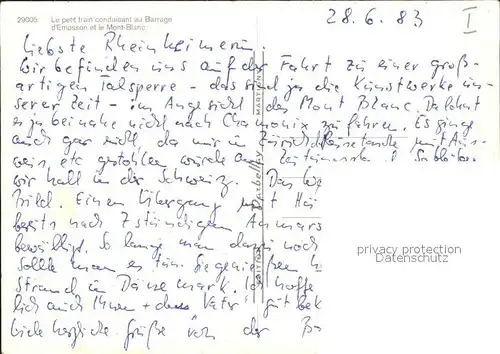 29005. Le petit train conduisant au Barrage
d'Emosson et le Mont-Blanc
28.6.83
I
Liebste Rheinheimerin
wir befinden uns auf der Fahrt zu einer groß-
artigen Talsperre - das sind ja die Kunstwerke un-
serer Zeit - im Angesicht des Mont Blanc. Da lohnt
es ja beinahe nicht nach Chamonix zu fahren. Es ginge
auch gar nicht, da mir in Zürich mit Aus-
weis etc gestohlen wurde
wir halt in der Schweiz. Das
Bild. Einen Übergang mit
bereits nach 7stündigen
bewältigt. So lange man dazu noch
sollte man es tun. Sie genießen
Strand in Dänemark. Ich hoffe
auch Ihnen + dem Vater gut
viele herzliche Grüße von der
EDITION
Darbellay
MARTIGNY
privacy protection
Datenschutz